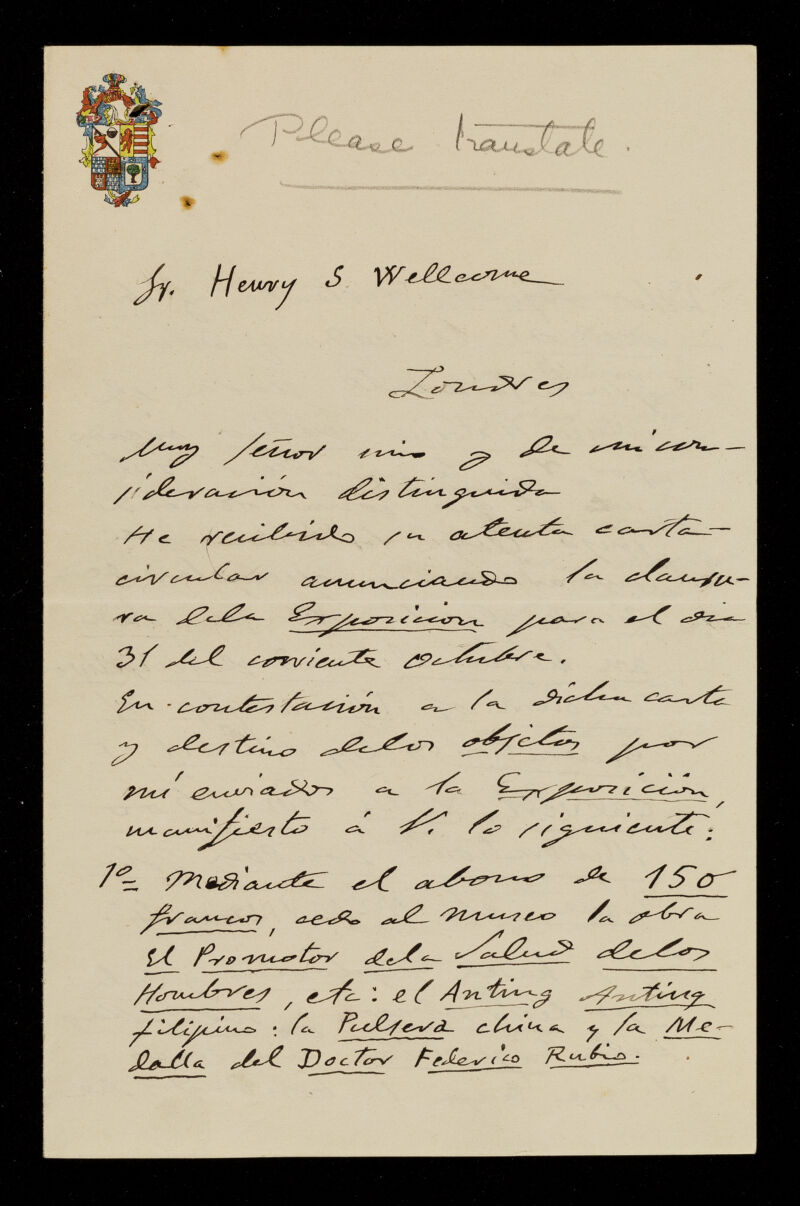 Please translate.
Sr. Henry S Wellcome
Londres
Muy señor mio y de mi con-
sideración distinguida
He recibido su atenta carta-
circular anunciando la clausu-
ra dela Exposicion para el dia
31 del corriente octubre.
En contestación a la dicha carta
y destino delos objetos por
mí enviados a la Exposición,
manifiesto á V. lo siguiente:
1º= Mediante el abono de 150
francos, cedo al museo la obra
El Promotor dela Salud delos
Hombres, etc: el Anting Anting
filipino: la Pulsera china y la Me-
dalla del Doctor Federico Rubio.